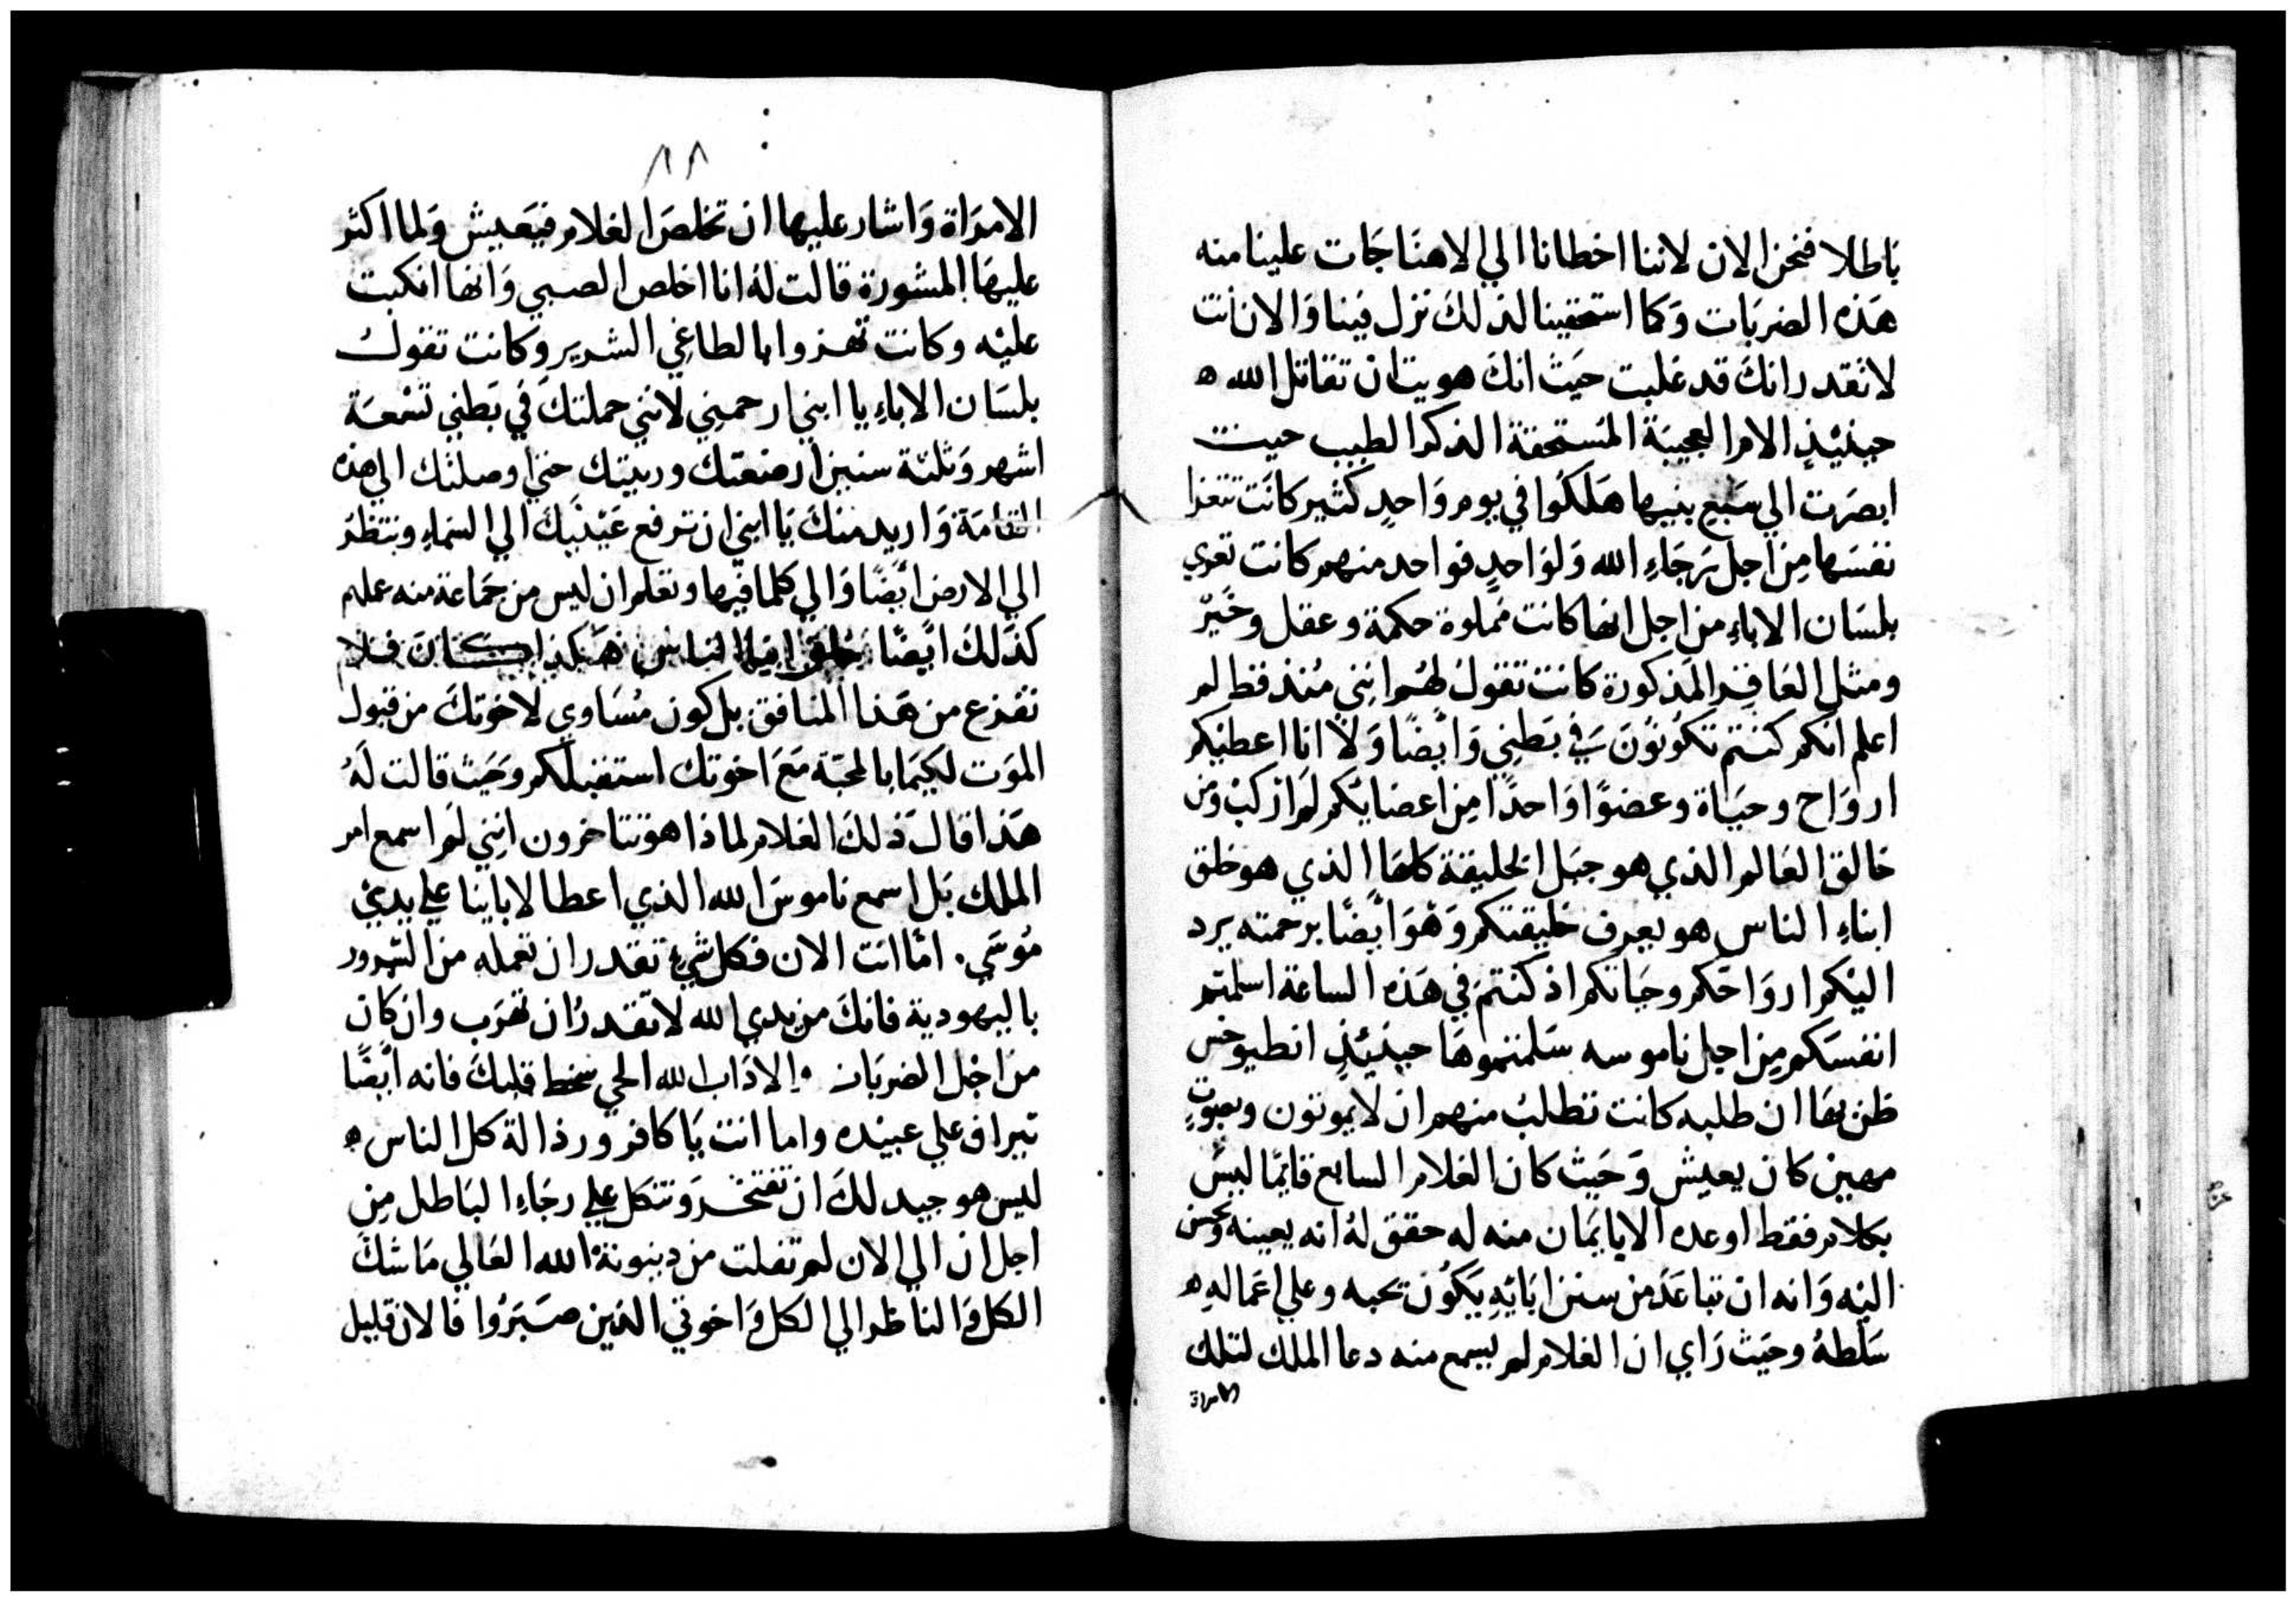 باطلا فنحن الان لاننا اخطانا الي الاهنا جات علينا منه
هذه الضربات وكما استحقينا لذلك نزل فينا والان انت
لا تقدر انك قد غلبت حيث انك هويت ان تقاتل الله ه
حينيذ الام العجيبة المستحقة الذكر الطيب حيث
ابصرت الي سبع بنيها هلكوا في يوم واحد كثير كانت تتعزا
نفسها من اجل رجاء الله ولواحد فواحد منهم كانت تعزي
بلسان الاباء من اجل انها كانت مملوة حكمة وعقل وخير
ومثل المذكورة كانت تقول لهم انني منذ قط لم
اعلم انكم كنتم تكونون في بطني وايضا ولا انا اعطيتكم
ارواح وحياة وعضوا واحدا من اعضايكم لم اركب ومن
خالق العالم الذي هو جبل الخليقة كلها الذي هو خلق
ابناء الناس هو يعرف خليقتكم وهو ايضا برحمته يرد
اليكم ارواحكم وحياتكم اذ كنتم في هذه الساعة اسلمتم
انفسكم من اجل ناموسه سلمتموها حينيذ انطيوخس
ظن بها ان طلبه كانت تطلب منهم ان لا يموتون وبموت
مهين كان يعيش وحيث كان الغلام السابع قايما ليس
بكلام فقط اوعده الا بايمان منه له حقق له انه يعينه ويحسن
اليه وانه ان تباعد من سنن ابايه يكون تحبه وعلي اعماله ه
سلطه وحيث راي ان الغلام لم يسمع منه دعا الملك لتلك
الامراة
٨٨
الامراة واشار عليها ان تخلص الغلام فيعيش ولما اكثر
عليها المشورة قالت له انا اخلص الصبي وانها انكبت
عليه وكانت تهزوا بالطاغي الشرير وكانت تقول
بلسان الاباء يا ابني ارحمني لانني حملتك في بطني تسعة
اشهر وثلثة سنين ارضعتك وربيتك حتي اوصلتك الي هذه
القامة واريد منك يا ابني ان ترفع عينيك الي السماء وتنظر
الي الارض ايضا والي كلما فيها وتعلم ان ليس من جماعة منه عملهم
كذلك ايضا خلق الناس هكذا كان فلا
تفزع من هذا المنافق بل كون مساوي لاخوتك من قبول
الموت لكيما بالمحبة مع اخوتك استقبلكم وحيث قالت له
هذا قال ذلك الغلام لماذا هو تتاخرون انني لم اسمع امر
الملك بل اسمع ناموس الله الذي اعطا لاباينا علي يدي
موسي . اما انت الان فكل شي تقدر ان تعمله من الشرور
باليهودية فانك من يدي الله لا تقدر ان تهرب وان كان
من اجل الضربات والاداب الله الحي سخط قلبك فانه ايضا
تيراف علي عبيده واما انت يا كافر ورذالة كل الناس ه
ليس هو جيد لك ان تفتخر وتتكل علي رجاء الباطل من
اجل ان الي الان لم تفلت من دينونة الله العالي ماسك
الكل والناظر الي الكل واخوتي الذين صبروا فالان قليل